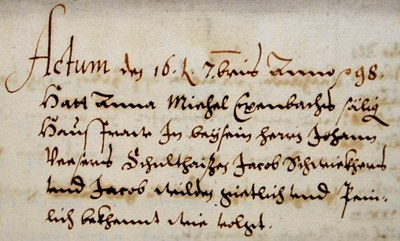 Actum den 16. 7.bris Anno 98.
Hatt Anna Michel Exenbachs sälig
Haus fraw In beysein herrn Johann
Veesers Schulthaißen Jacob Schweikhers
und Jacob Wilden gietlich und Pein-
lich bekhennt wie volgt.